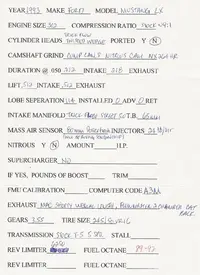 YEAR 1993 MAKE FORD MODEL MUSTANG LX
ENGINE SIZE 302 COMPRESSION RATIO STOCK
CYLINDER HEADS PORTED Y N
CAMSHAFT GRIND NITROUS CAM
DURATION @ .050 212 INTAKE 218 EXHAUST
LIFT 512 INTAKE 512 EXHAUST
LOBE SEPERATION 114 INSTALLED 0 ADV 0 RET
INTAKE MANIFOLD STREET T.B. 65MM
MASS AIR SENSOR INJECTORS 24 lb/hr
NITROUS Y N AMOUNT H.P.
SUPERCHARGER NO
IF YES, POUNDS OF BOOST TRIM
FMU CALIBRATION COMPUTER CODE A3M
EXHAUST MAC SHORTY UNEQUAL LENGTH, 2 CHAMBER CAT
BACK
GEARS 3.55 TIRE SIZE 245/50VR16
TRANSMISSION STOCK T-5 5 SPD STALL
6250
REV LIMITER FUEL OCTANE 89-93
REV LIMITER FUEL OCTANE